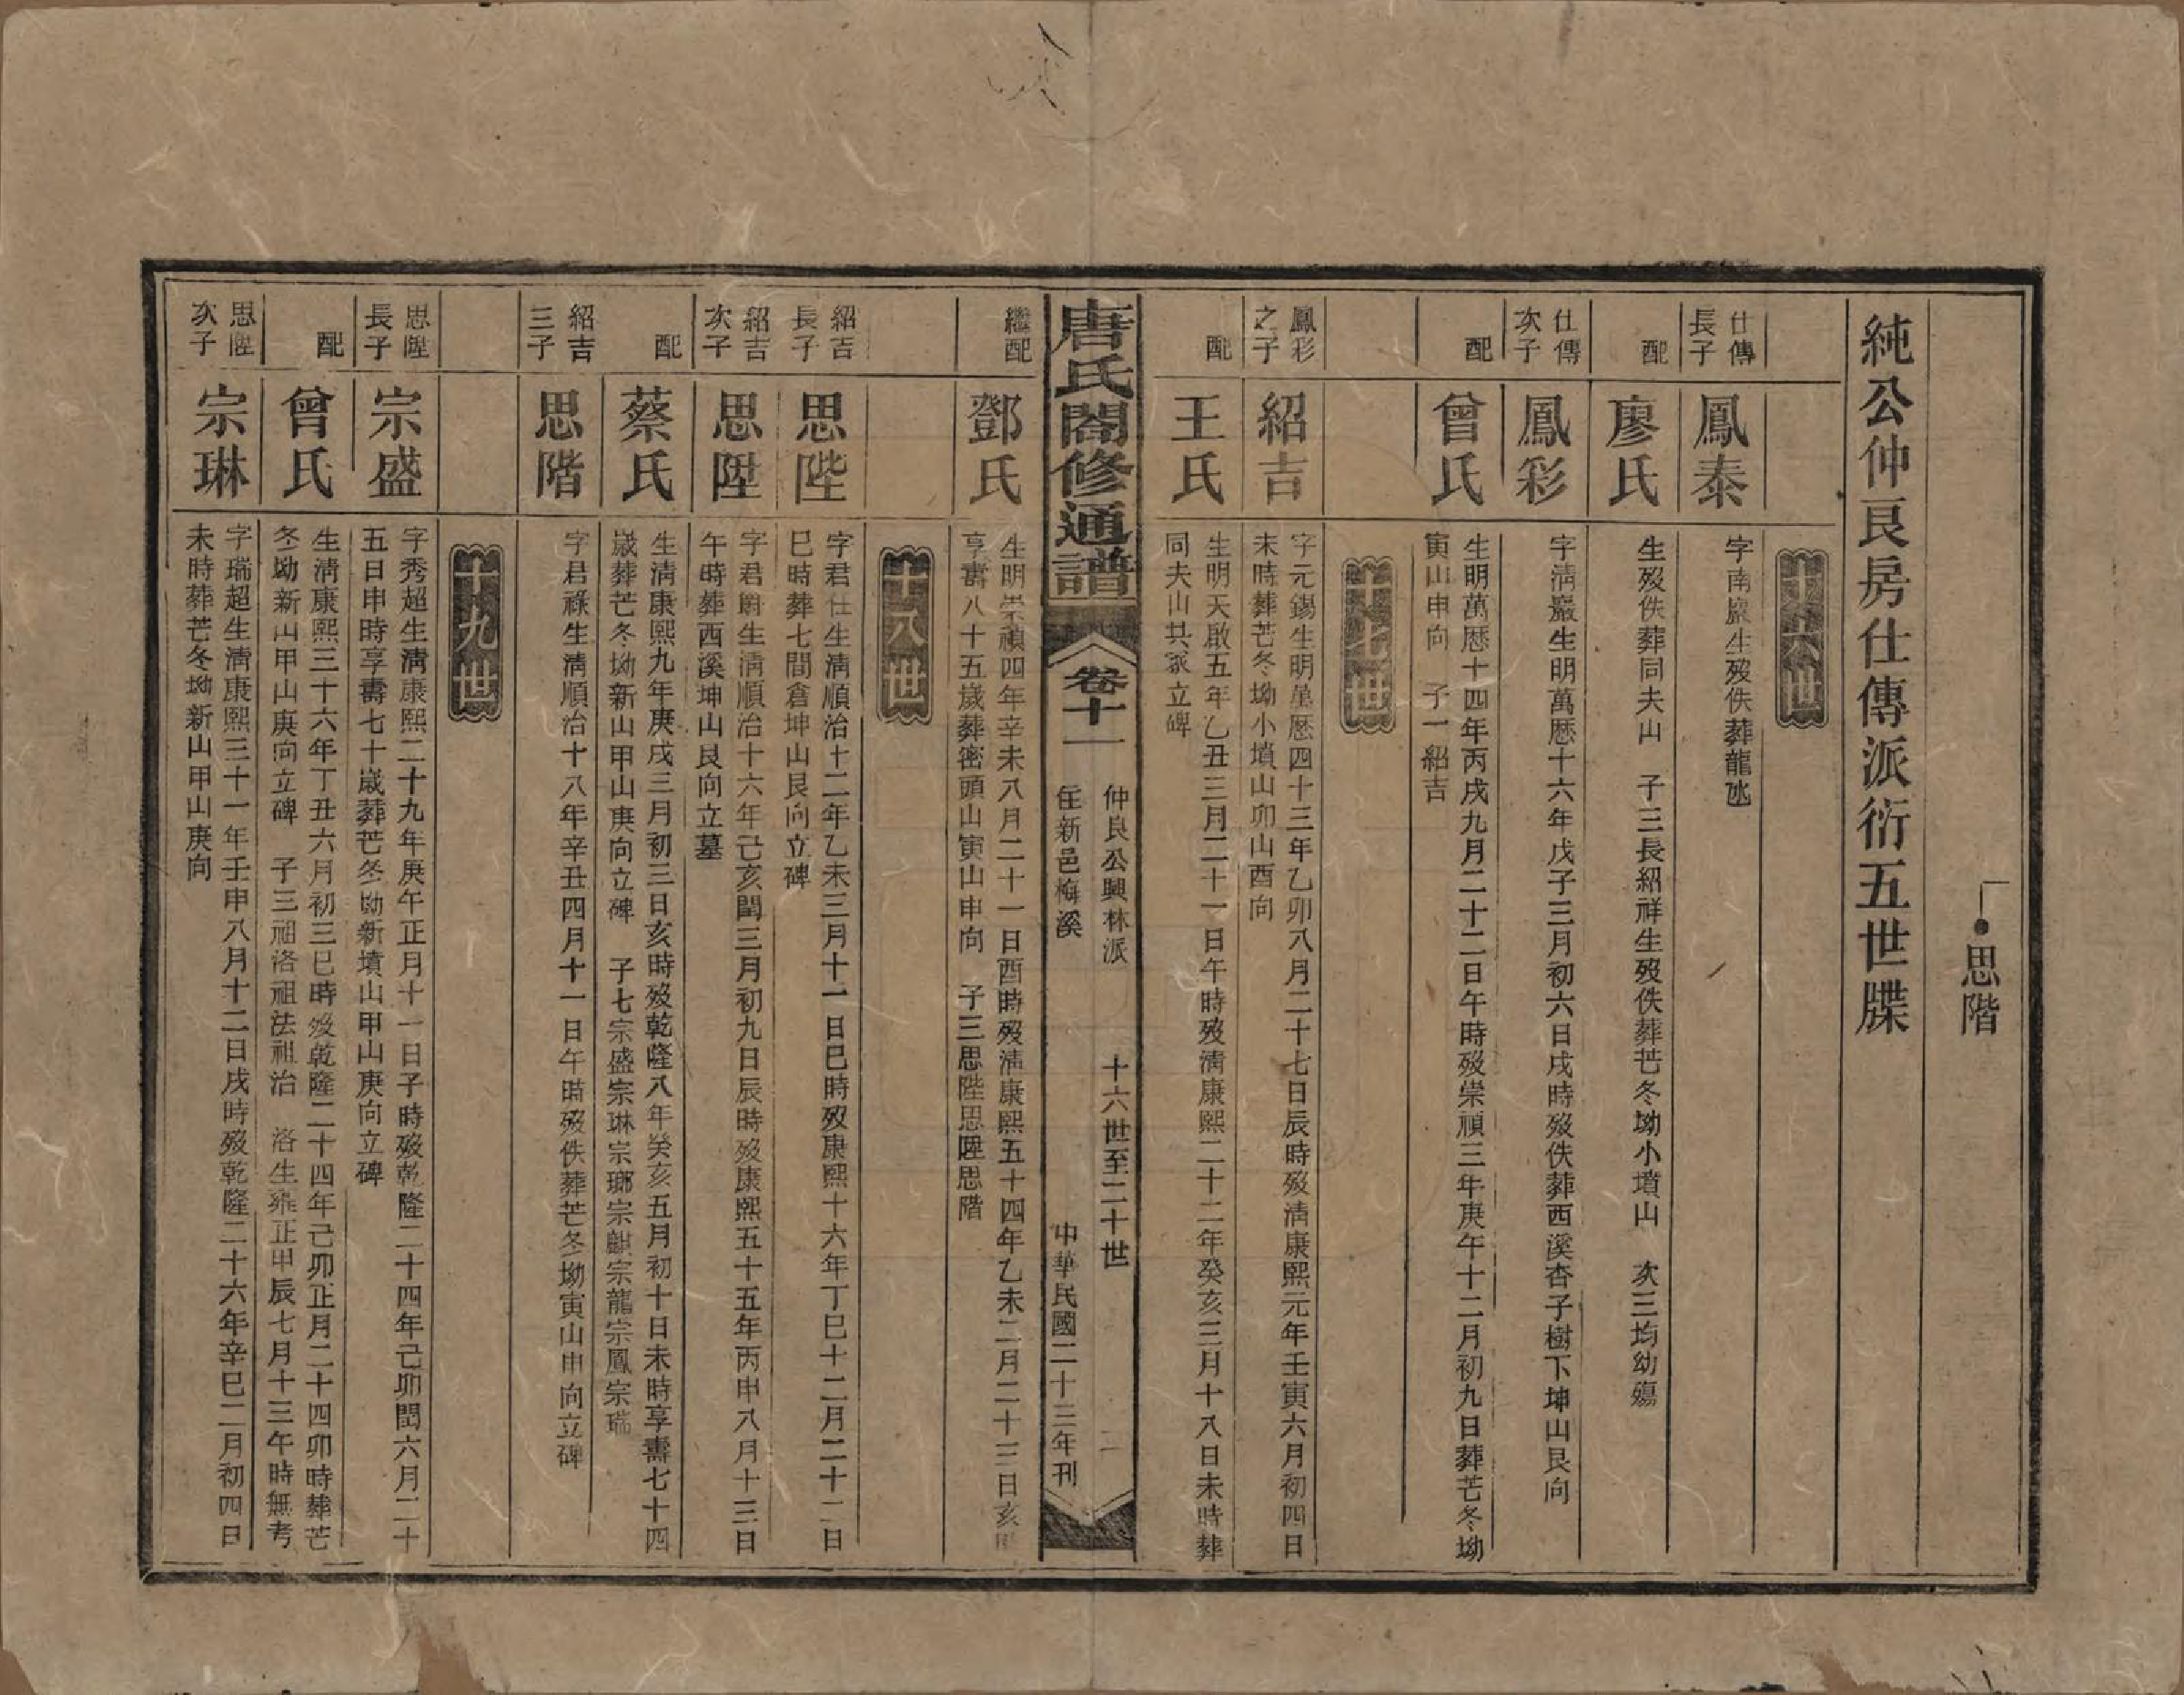 思階
純公仲良房仕傳派衍五世牒
十六世
仕傳長子
鳳泰
字南巖生歿佚葬龍氹
配
廖氏
生歿佚葬同夫山　子三長紹祥生歿佚葬芒冬坳小墳山　次三均幼殤
仕傳次子
鳳彩
字清巖生明萬歷十六年戊子三月初六日戌時歿佚葬西溪杏子樹下坤山艮向
配
曾氏
生明萬歷十四年丙戌九月二十二日午時歿崇禎三年庚午十二月初九日葬芒冬坳
寅山申向　子一紹吉
十七世
鳳彩之子
紹吉
字元錫生明萬歷四十三年乙卯八月二十七日辰時歿清康熙元年壬寅六月初四日
未時葬芒冬坳小墳山卯山酉向
配
王氏
生明天啟五年乙丑三月二十一日午時歿清康熙二十二年癸亥三月十八日未時葬
同夫山共冢立碑
唐氏閤修通譜
卷十一
仲良公興林派
住新邑梅溪
十六世至二十世
二
中華民國二十三年刊
繼配
鄧氏
生明崇禎四年辛未八月二十一日酉時歿清康熙五十四年乙未二月二十三日亥時
享壽八十五歲葬密頭山寅山申向　子三思陛思陞思階
十八世
紹吉長子
思陛
字君仕生清順治十二年乙未三月十一日巳時歿康熙十六年丁巳十二月二十二日
巳時葬七間倉坤山艮向立碑
紹吉次子
思陞
字君爵生清順治十六年己亥閏三月初九日辰時歿康熙五十五年丙申八月十三日
午時葬西溪坤山艮向立墓
配
蔡氏
生清康熙九年庚戌三月初三日亥時歿乾隆八年癸亥五月初十日未時享壽七十四
歲葬芒冬坳新山甲山庚向立碑　子七宗盛宗琳宗瑯宗麒宗龍宗鳳宗瑞
紹吉三子
思階
字君祿生清順治十八年辛丑四月十一日午時歿佚葬芒冬坳寅山申向立碑
十九世
思陞長子
宗盛
字秀超生清康熙二十九年庚午正月十一日子時歿乾隆二十四年己卯閏六月二十
五日申時享壽七十歲葬芒冬坳新墳山甲山庚向立碑
配
曾氏
生清康熙三十六年丁丑六月初三巳時歿乾隆二十四年己卯正月二十四卯時葬芒
冬坳新山甲山庚向立碑　子三祖洛祖法祖治　洛生雍正甲辰七月十三午時無考
思陞次子
宗琳
字瑞超生清康熙三十一年壬申八月十二日戌時歿乾隆二十六年辛巳二月初四日
未時葬芒冬坳新山甲山庚向